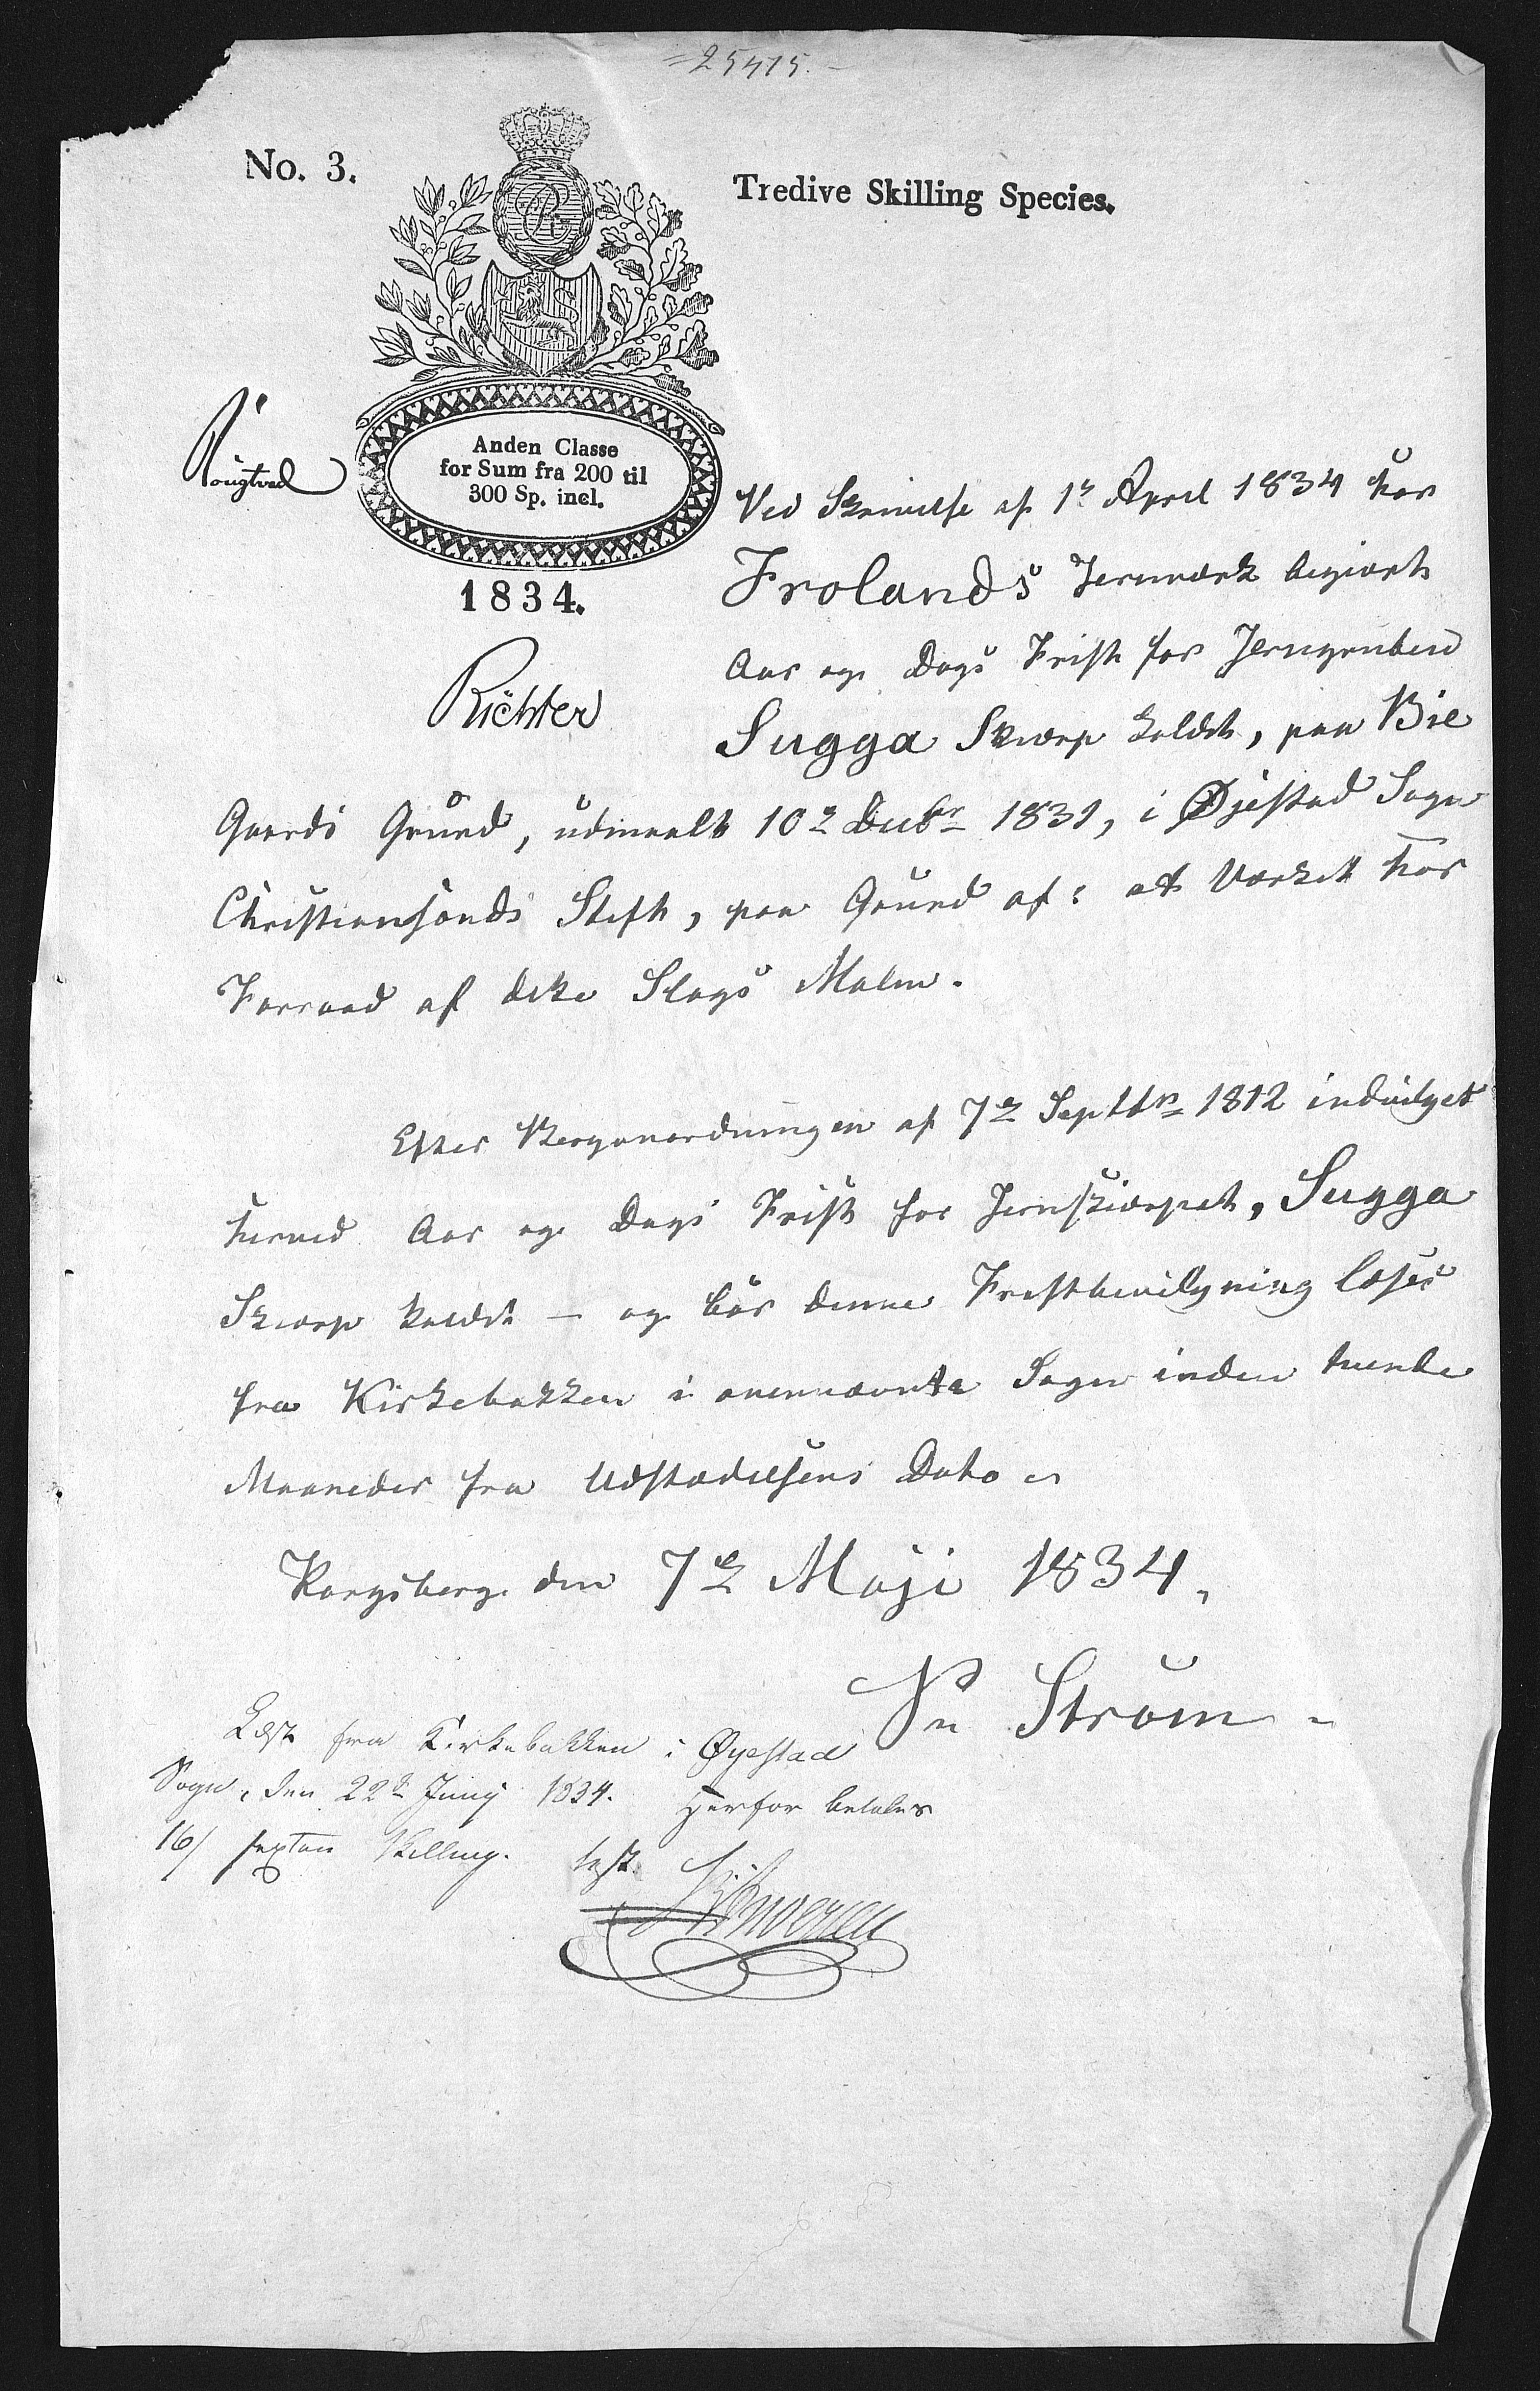 25475.
No. 3.
Tredive Skilling Species.
Anden Classe
for Sum fra 200 til
300 Sp. incl.
1834.
Richter
Ved Skrivelse af 1e April 1834 har
Frolands Jernværk begiært
Aar og Dags Frist for Jerngruben
Sugga Skiærp kaldet, paa Bie
Gaards Grund, udmaalt 10e Decbr 1831, i Øjestad Sogn
Christiansands Stift, paa Grund af: at Værket har
Forraad af dette Slags Malm.
Efter Berganordningen af 7e Septbr 1812 indvilget
herved Aar og Dags Frist for Jernskiærpet, Sugga
Skiærp kaldet – og bør denne Fristbevilgning læses
fra Kirkebakken i ovennævnte Sogn inden tvende
Maaneder fra Udstædelsens Dato
Kongsberg den 7e Maji 1834,
Strøm
Læst fra Kirkebakken i Øyestad
Sogn, den 22de Junij 1834. Herfor betales
16/ sexten Skilling. test.